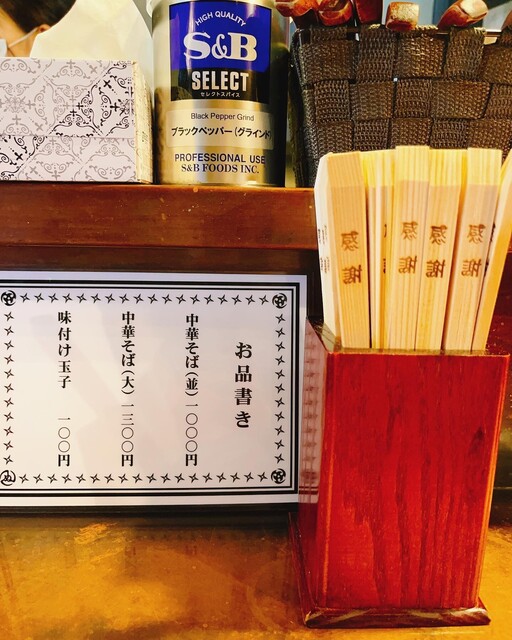 HIGH QUALITY
S&B
SELECT
セレクトスパイス
Black Pepper Grind
ブラックペッパー(グラインド)
PROFESSIONAL USE
S&B FOODS INC.
お品書き
中華そば(並)一〇〇〇円
中華そば(大)一三〇〇円
味付け玉子 一〇〇円